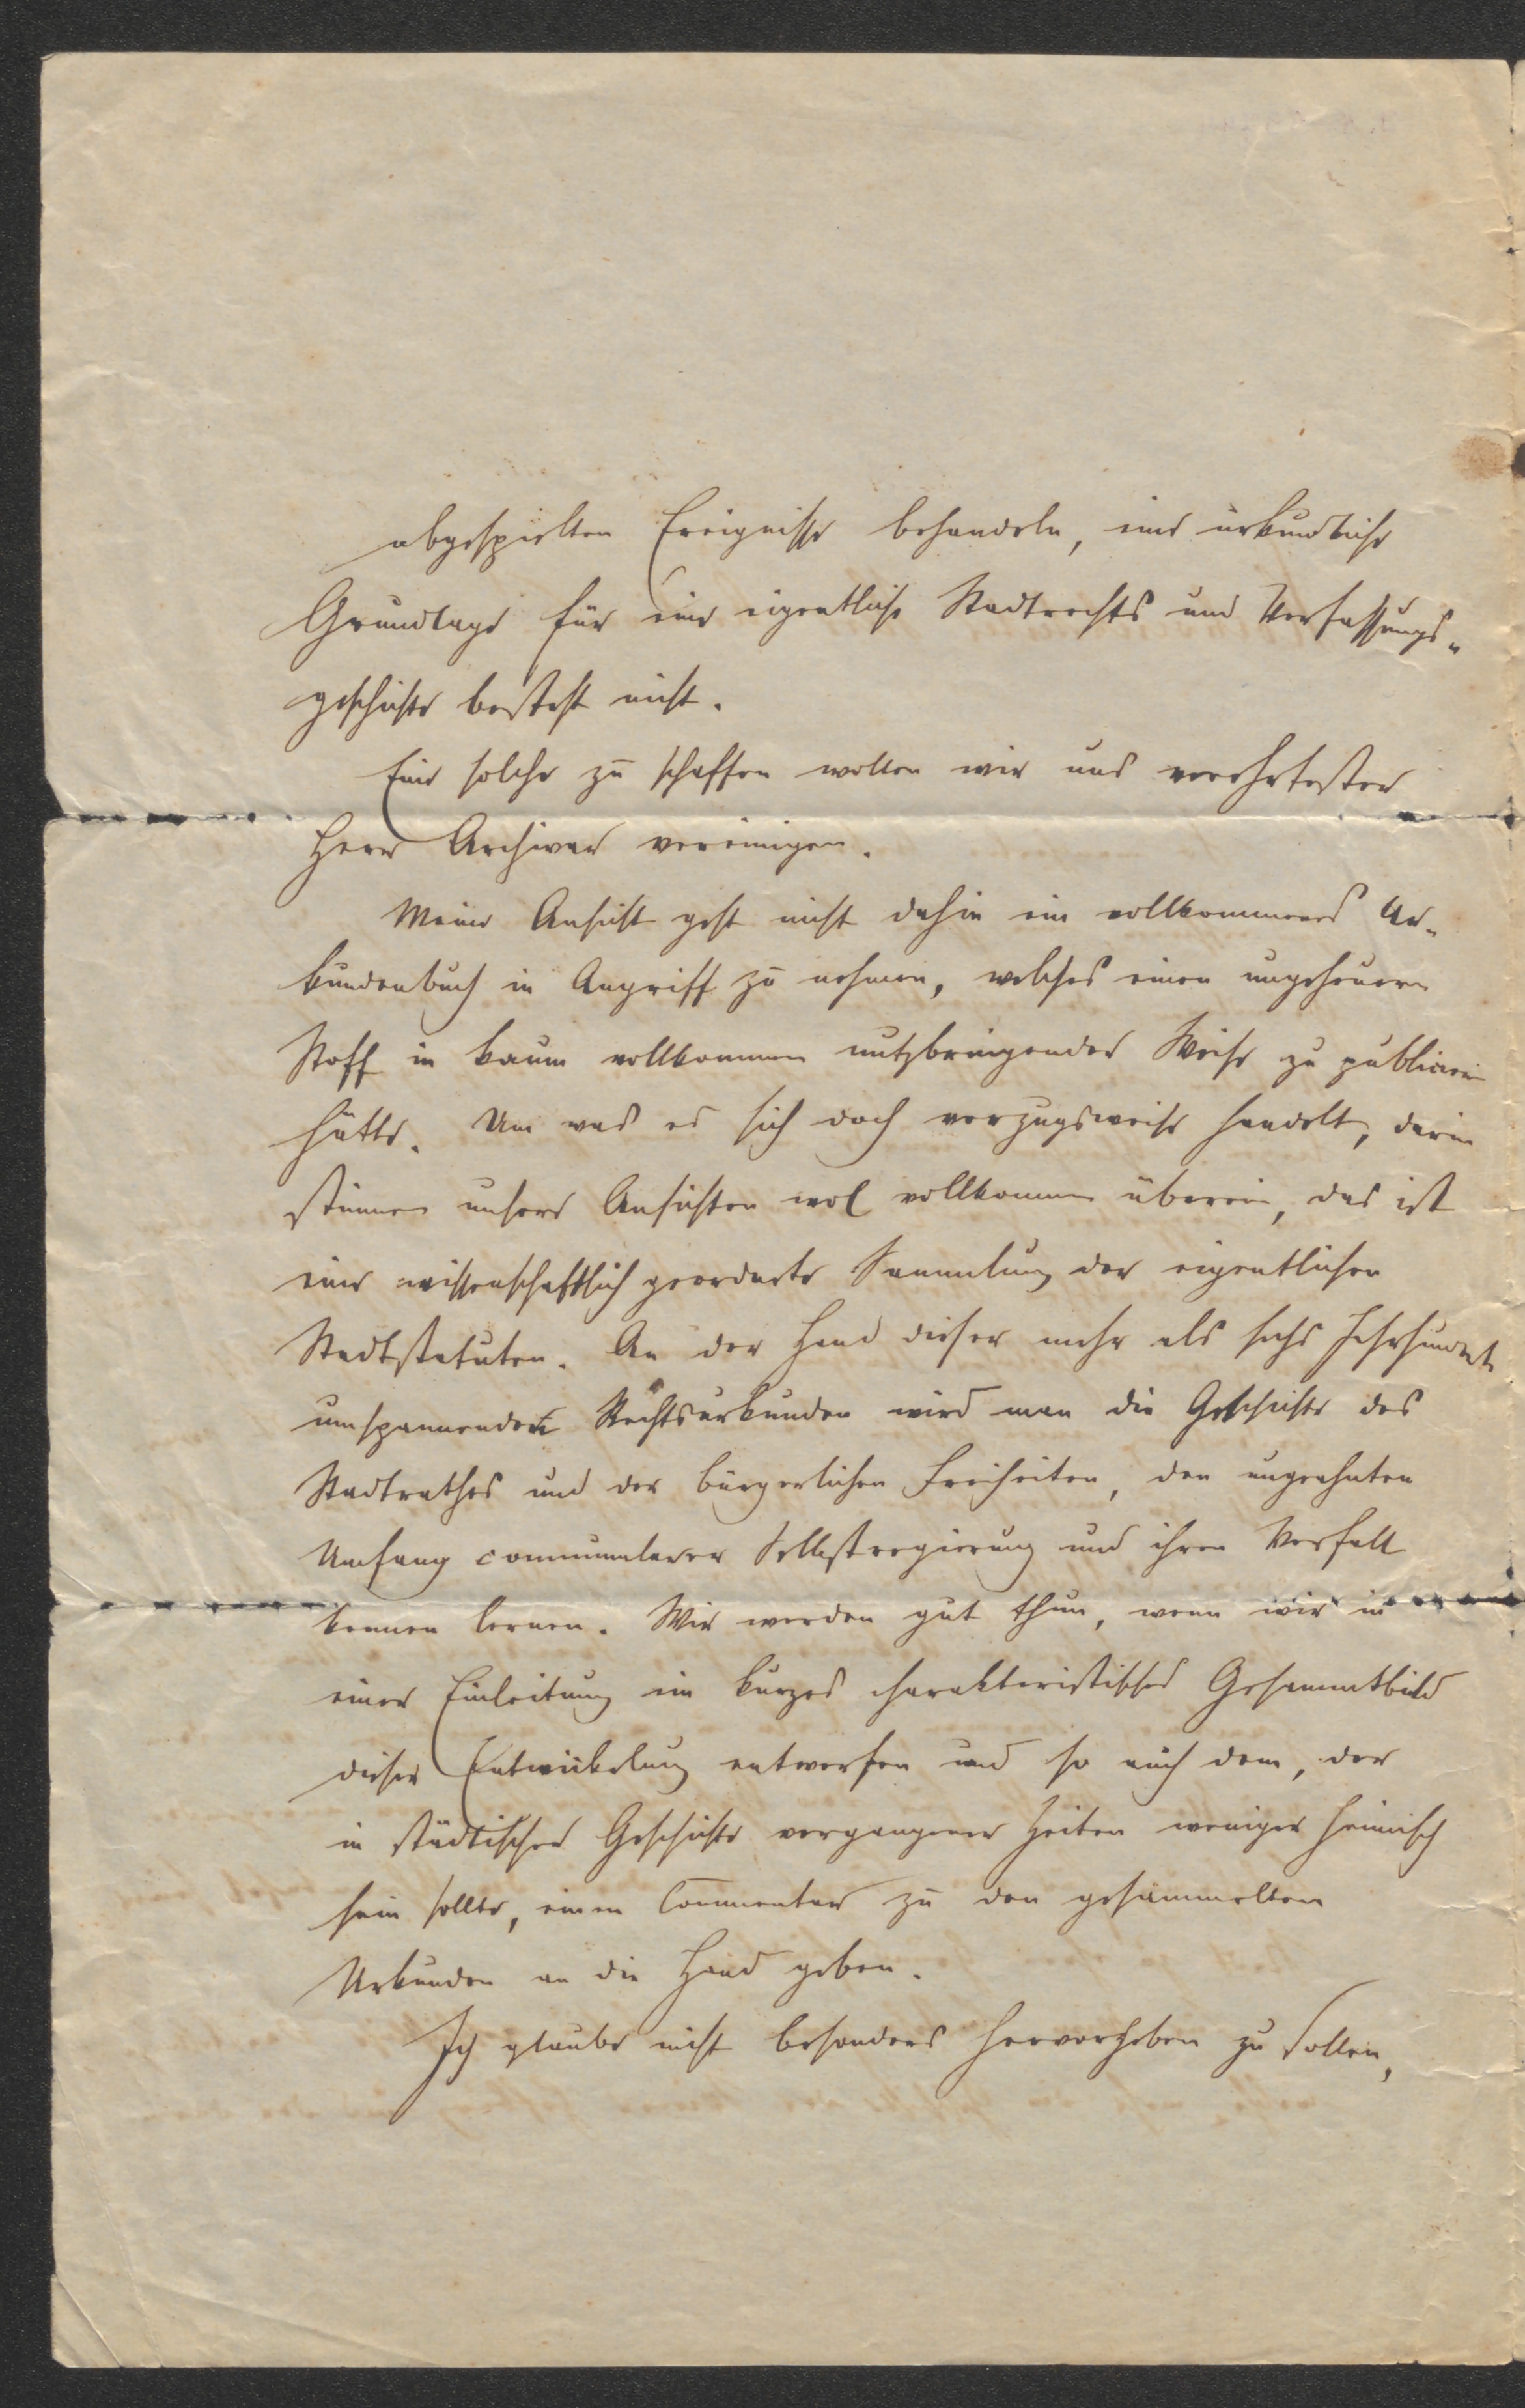 abgespielten Ereignisse behandeln, eine urkundliche
Grundlage für eine eigentliche Stadtrechts und Verfassungs-
geschichte besteht nicht.
Eine solche zu schaffen wollen wir uns verehrtester
Herr Archivar vereinigen.
Meine Ansicht geht nicht dahin ein vollkommenes Ur-
kundenbuch in Angriff zu nehmen, welches einen ungeheuren
Stoff in kaum vollkommen nutzbringender Weise zu publiciren
hätte. Um was es sich doch vorzugsweise handelt, darin
stimmen unsere Ansichten wol vollkommen überein, das ist
eine wissenschaftlich geordnete Sammlung der eigentlichen
Stadtstatuten. An der Hand dieser mehr als sechs Jahrhunderte
umspannenden Rechtsurkunden wird man die Geschichte des
Stadtrathes und der bürgerlichen Freiheiten, den ungeahnten
Umfang communaler Selbstregierung und ihren Verfall
kennen lernen. Wir werden gut thun, wenn wir in
einer Einleitung ein kurzes charakteristisches Gesammtbild
dieser Entwickelung entwerfen und so auch dem, der
in städtischer Geschichte vergangener Zeiten weniger heimisch
sein sollte, einen Commentar zu den gesammelten
Urkunden an die Hand geben.
Ich glaube nicht besonders hervorheben zu sollen,